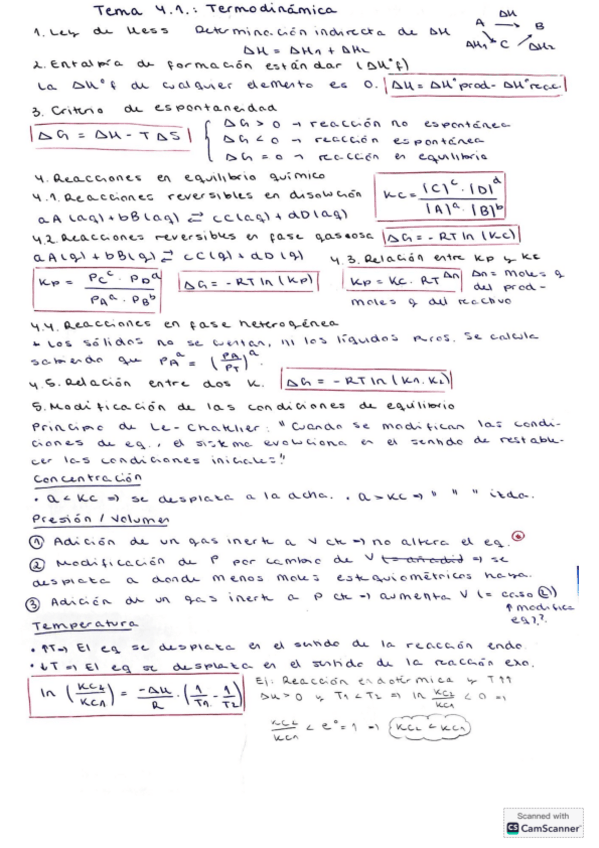 Tema 4.1.: Termodinámica
1. Ley de Hess Determinación indirecta de ΔH
ΔH = ΔH1 + ΔH2
A ΔH B
ΔH1 C ΔH2
2. Entalpía de formación estándar (ΔH°f)
La ΔH°f de cualquier elemento es 0. ΔH = ΔH°prod - ΔH°reac.
3. Criterio de espontaneidad
ΔG = ΔH - TΔS
ΔG > 0 → reacción no espontánea
ΔG < 0 → reacción espontánea
ΔG = 0 → reacción en equilibrio
4. Reacciones en equilibrio químico
4.1. Reacciones reversibles en disolución
aA(aq) + bB(aq) ⇄ cC(aq) + dD(aq)
Kc = |C|^c · |D|^d / |A|^a · |B|^b
4.2. Reacciones reversibles en fase gaseosa ΔG = -RT ln(Kc)
aA(g) + bB(g) ⇄ cC(g) + dD(g) 4.3. Relación entre Kp y Kc
Kp = Pc^c · PD^d / PA^a · PB^b
ΔG = -RT ln(Kp)
Kp = Kc · RT^Δn
Δn = moles g
del prod-
moles g del reactivo
4.4. Reacciones en fase heterogénea
+ Los sólidos no se cuentan, ni los líquidos puros. Se calcula
sabiendo que PA^a = (PA/PT)^a.
4.5. Relación entre dos K. ΔG = -RT ln(K1·K2)
5. Modificación de las condiciones de equilibrio
Principio de Le-Chatelier: "Cuando se modifican las condi-
ciones de eq., el sistema evoluciona en el sentido de restable-
cer las condiciones iniciales."
Concentración
· Q < Kc ⇒ se desplaza a la dcha. · Q > Kc ⇒ " " " itda.
Presión / Volumen
① Adición de un gas inerte a V ctc ⇒ no altera el eq.
② Modificación de P por cambio de V ⇒ se
desplaza a donde menos moles estequiométricos haya.
③ Adición de un gas inerte a P ctc ⇒ aumenta V (= caso ②)
↑ modifica
eq?.
Temperatura
· ↑T ⇒ El eq se desplaza en el sentido de la reacción endo.
· ↓T ⇒ El eq se desplaza en el sentido de la reacción exo.
ln (Kc2/Kc1) = -ΔH/R · (1/T1 - 1/T2)
Ej: Reacción exotérmica y T↑↑
ΔH > 0 y T1 < T2 ⇒ ln Kc2/Kc1 < 0 ⇒
Kc2/Kc1 < e° = 1 ⇒ Kc2 < Kc1
Scanned with
CS CamScanner